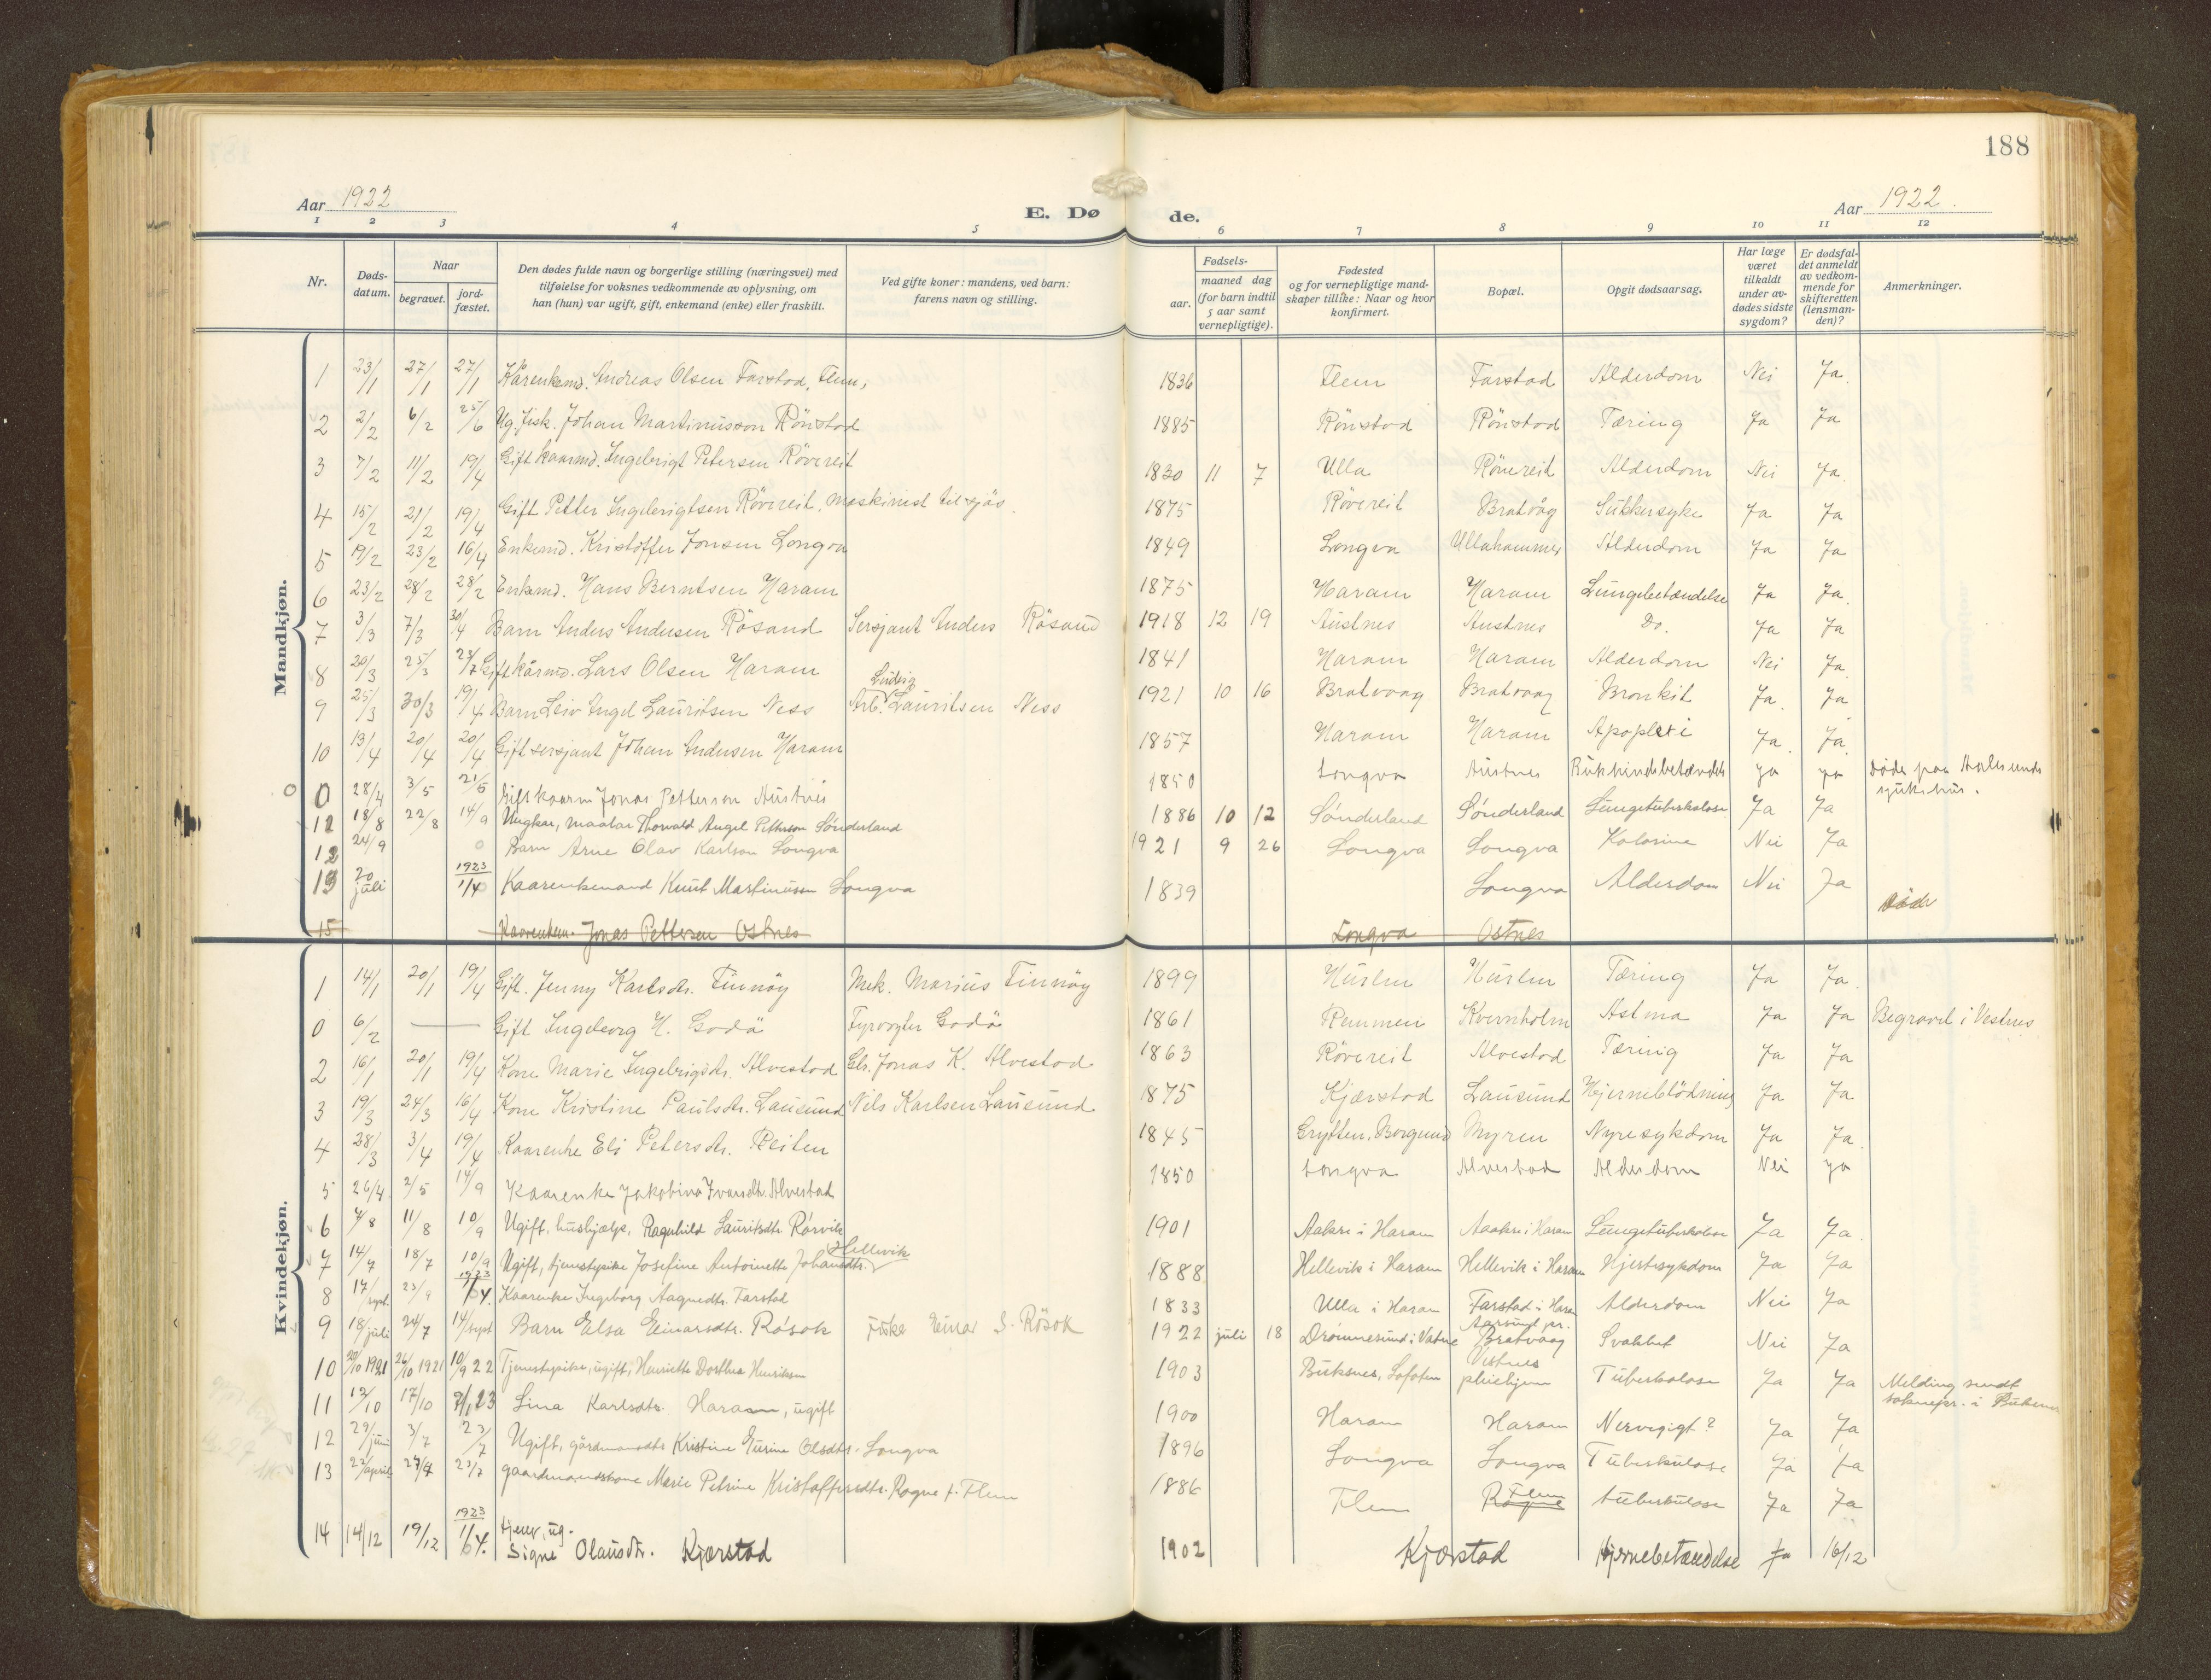 188
Aar 1922
E. Dø
de.
Aar 1922.
1 2 3 4 5 6 7 8 9 10 11 12
Nr.
Døds-datum.
Naar
begravet.
jord-fæstet.
Den dødes fulde navn og borgerlige stilling (næringsvei) med
tilføielse for voksnes vedkommende av oplysning, om
han (hun) var ugift, gift, enkemand (enke) eller fraskilt.
Ved gifte koner: mandens, ved barn:
farens navn og stilling.
Fødsels-
aar.
maaned dag
(for barn indtil
5 aar samt
vernepligtige).
Fødested
og for vernepligtige mand-
skaper tillike: Naar og hvor
konfirmert.
Bopæl.
Opgit dødsaarsag.
Har læge
været
tilkaldt
under av-
dødes sidste
sygdom?
Er dødsfal-
det anmeldt
av vedkom-
mende for
skifteretten
(lensman-
den)?
Anmerkninger.
Mandkjøn.
1 23/1 27/1 27/1 Kårenkemd. Andreas Olsen Farstad, Flem, 1836 Flem Farstad Alderdom Nei Ja.
2 2/2 6/2 25/6 Ug. fisk. Johan Martinusson Rönstad 1885 Rönstad Rönstad Tæring Ja Ja
3 7/2 11/2 19/4 Gift kaarmd. Ingebrigt Petersen Rövereit 1830 11 7 Ulla Rövereit Alderdom Nei Ja.
4 15/2 21/2 19/4 Gift Petter Ingebrigtsen Rövereit, maskinist tilsjøs. 1875 Rövereit Bratvåg Sukkersyke Ja Ja
5 19/2 23/2 16/4 Enkemd. Kristoffer Jonsen Longva 1849 Longva Ullahammer Alderdom Ja Ja
6 23/2 28/2 28/2 Enkemd. Hans Berntsen Haram 1875 Haram Haram Lungebetændelse Ja Ja.
7 3/3 7/3 30/4 Barn Anders Andersen Rösand Sersjant Anders Rösand 1918 12 19 Austnes Austnes Do. Ja Ja
8 20/3 25/3 23/7 Gift kårmd. Lars Olsen Haram 1841 Haram Haram Alderdom Nei Ja.
9 25/3 30/3 19/4 Barn Leiv Ingel Lauritsen Ness Arb. Ludvig Lauritsen Ness 1921 10 16 Bratvaag Bratvaag Bronkit Ja. Ja
10 13/4 20/4 20/4 Gift sersjant Johan Andersen Haram 1857 Haram Haram Apoplexi Ja. Ja.
0 0 28/4 3/5 21/5 Gift kaarm Jonas Petterson Austnes 1850 Longva Austnes Bukhindebetændels ja ja Døde paa Aalesunds
sjukehus.
11 18/8 22/8 14/9 Ungkar, maalar Thorvald Angel Petterson Sønderland 1886 10 12 Sønderland Sønderland Lungetuberkolose Ja Ja
12 24/9 0 Barn Arne Olav Karlson Longva 1921 9 26 Longva Longva Kolerine Nei Ja
13 20 juli 1923 1/4 Kaarenkemand Knut Martinussen Longva 1839 Longva Alderdom Nei Ja
Døde
15 Kaarenkem. Jonas Pettersen Ostnes Longva Ostnes
Kvindekjøn.
1 14/1 20/1 19/4 Gift. Jenny Karlsdtr. Finnöy Mek. Marius Finnöy 1899 Huslen Huslen Tæring Ja Ja.
0 6/2 — Gift Ingeborg H. Godö Fyrvogter Godö 1861 Remmen Kvernholm Astma Ja Ja Begravd i Vestnes
2 16/1 20/1 19/4 Kone Marie Ingebrigtsdtr. Alvestad Gbr. Jonas K. Alvestad 1863 Rövereit Alvestad Tæring Ja Ja
3 19/3 24/3 16/4 Kone Kristine Paulsdtr. Lausund Nils Karlsen Lausund 1875 Kjærstad Lausund Hjerneblödning Ja Ja
4 28/3 3/4 19/4 Kaarenke Eli Petersdtr. Reiten 1845 Grytten, Borgund Myren Nyresykdom Ja Ja.
5 26/4 2/5 14/9 Kaarenke Jakobina Ivarsdtr. Alvestad 1850 Longva Alvestad Alderdom Nei ja
6 4/8 11/8 10/9 Ugift, hushjælp, Ragnhild Lauritsdtr Rørvik 1901 Aakre i Haram Aakre i Haram Lungetuberkolose Ja Ja.
7 14/7 18/7 10/9 Ugift, tjenstepike Josefine Antoinette Johansdtr. Hellevik 1888 Hellevik i Haram Hellevik i Haram Hjertesykdom Ja Ja
8 17/sept 23/9 1923 1/4. Kaarenke Ingeborg Aagnedtr. Farstad 1833 Ulla i Haram Farstad i Haram Alderdom Nei Ja
9 18/juli 24/7 14/sept Barn Elsa Einarsdtr. Røsok Fisker Einar S. Røsok 1922 juli 18 Drømmesund i Vatne Aarsund pr. Bratvaag Svakhet Nei Ja
10 20/10 1921 26/10 1921 10/9 22 Tjenstepike, ugift, Henriette Dorthea Henriksen 1903 Buksnes, Lofoten Vestnes pleiehjem Tuberkolose Ja Ja Melding sendt
soknepr. i Buksnes
11 12/10 17/10 7/1 23 Lina Karlsdtr. Haram, ugift 1900 Haram Haram Nervegigt? Ja Ja
12 29/juni 3/7 23/7 Ugift, gårdmandsdtr Kristine Gurine Olsdtr. Longva 1896 Longva Longva Tuberkulose Ja Ja
13 22/april 27/4 23/7 gaardmandskone Marie Petrine Kristoffersdtr. Rogne f. Flem 1886 Flem Rogne Flem tuberkulose Ja Ja
14 14/12 19/12 1923 1/4. tjener, ug.
Signe Olausdtr. Kjærstad 1902 Kjærstad Hjernebetændelse Ja 16/12